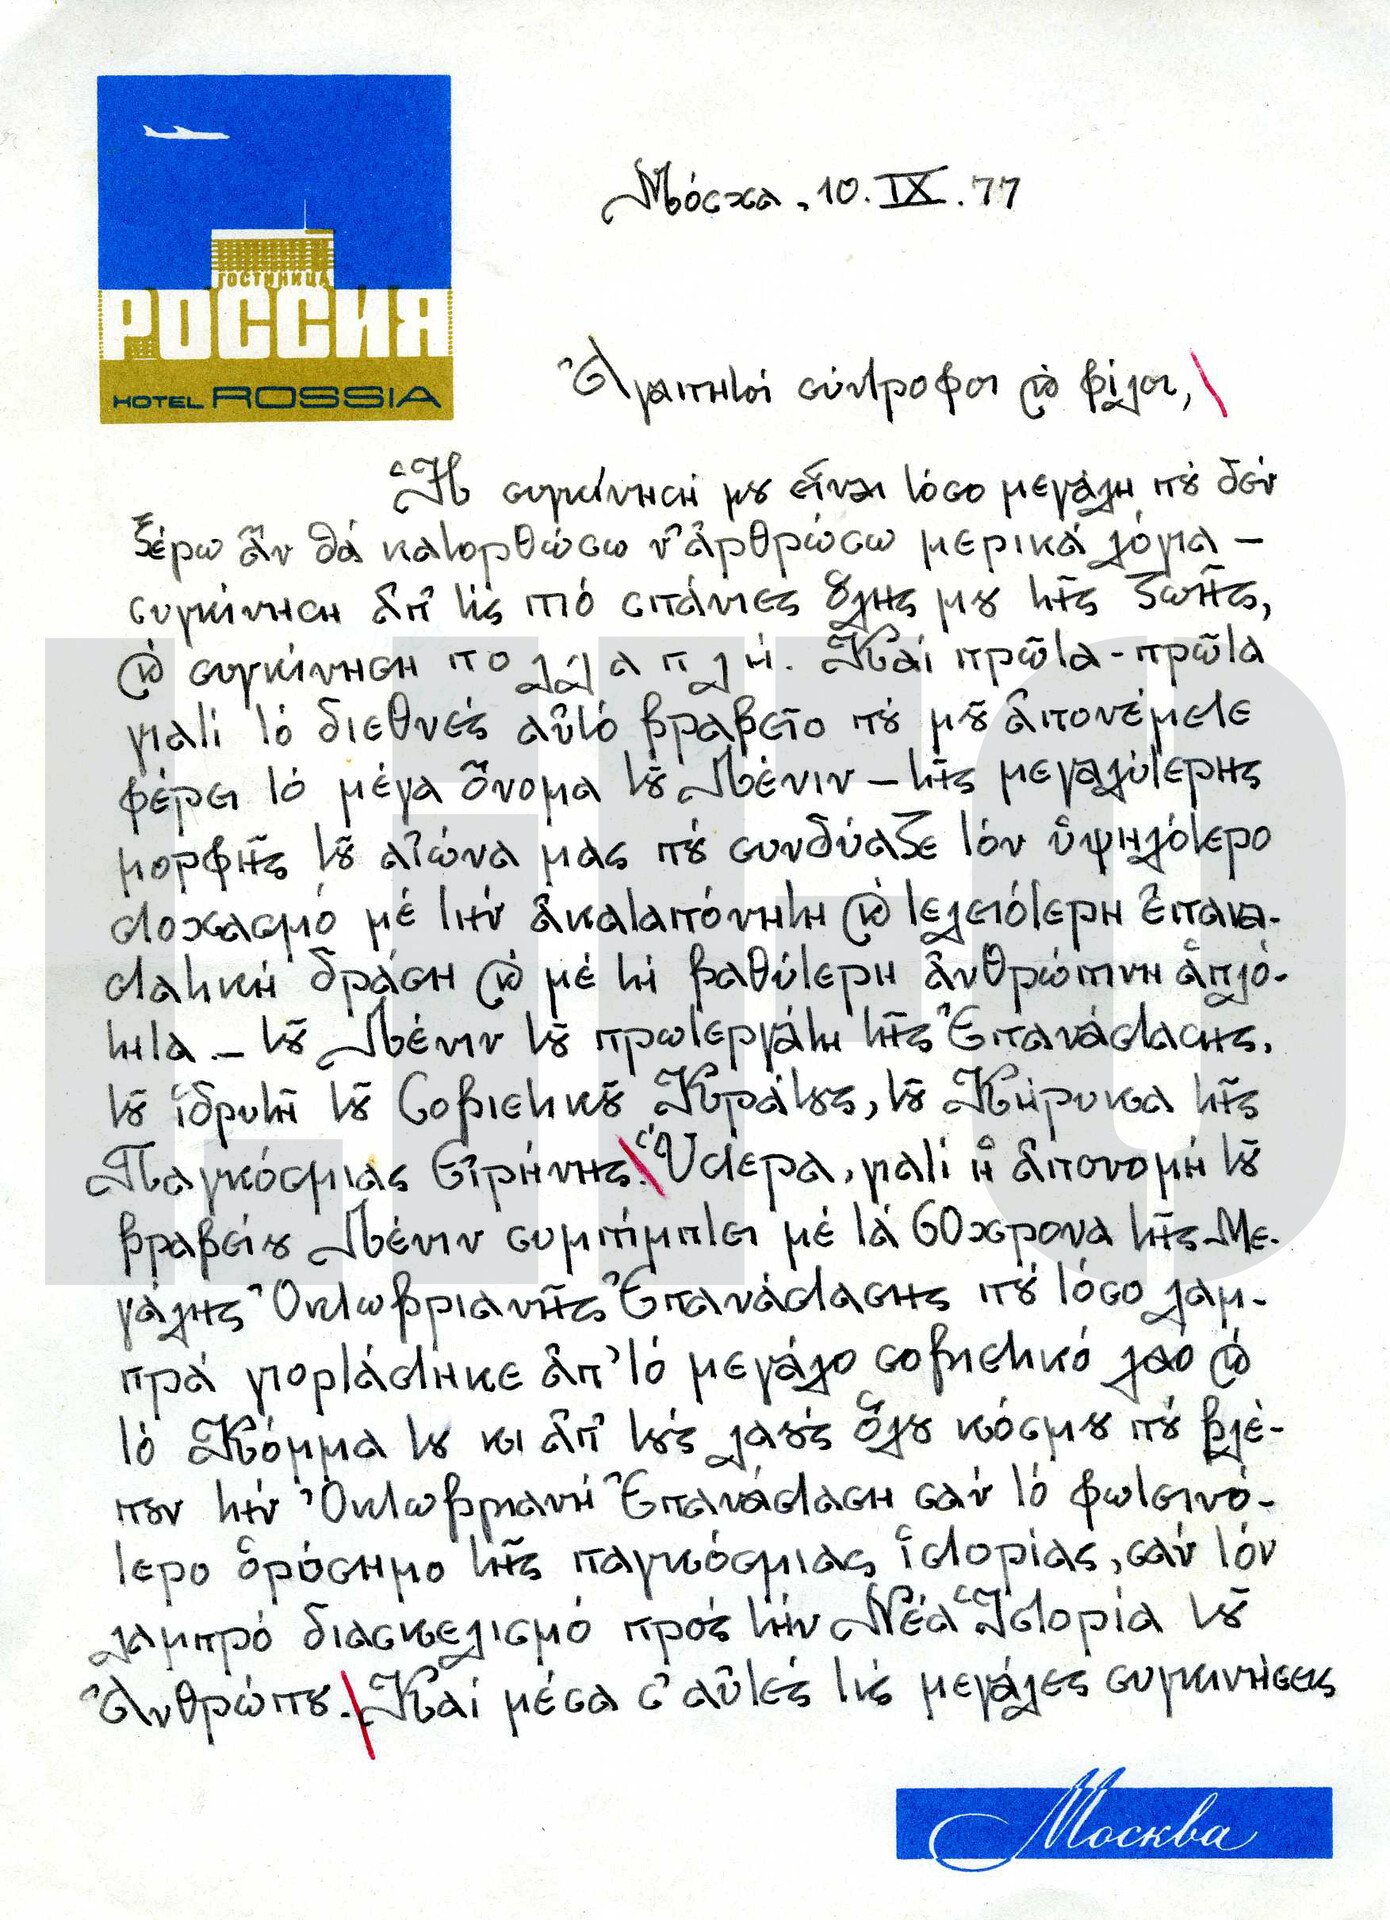 ГОСТИНИЦА
РОССИЯ
HOTEL ROSSIA
Μόσχα, 10.IX.77
Ἀγαπητοί σύντροφοι καὶ φίλοι,
Ἡ συγκίνησή μου εἶναι τόσο μεγάλη πού δέν
ξέρω ἄν θά κατορθώσω ν' ἀρθρώσω μερικά λόγια –
συγκίνηση ἀπ' τίς πιό σπάνιες ὅλης μου τῆς ζωῆς,
καὶ συγκίνηση πολλαπλή. Καί πρῶτα-πρῶτα
γιατί τό διεθνές αὐτό βραβεῖο πού μοῦ ἀπονέμετε
φέρει τό μέγα ὄνομα τοῦ Λένιν – τῆς μεγαλύτερης
μορφῆς τοῦ αἰώνα μας πού συνδύαζε τόν ὑψηλότερο
στοχασμό μέ τήν ἀκαταπόνητη καὶ τελειότερη ἐπανα-
στατική δράση καὶ μέ τή βαθύτερη ἀνθρώπινη ἁπλό-
τητα – τοῦ Λένιν τοῦ πρωτεργάτη τῆς Ἐπανάστασης,
τοῦ ἱδρυτῆ τοῦ Σοβιετικοῦ Κράτους, τοῦ Κήρυκα τῆς
Παγκόσμιας Εἰρήνης. Ὕστερα, γιατί ἡ ἀπονομή τοῦ
βραβείου Λένιν συμπίμπτει μέ τά 60χρονα τῆς Με-
γάλης Ὀκτωβριανῆς Ἐπανάστασης πού τόσο λαμ-
πρά γιορτάστηκε ἀπ' τό μεγάλο σοβιετικό λαό καὶ
τό Κόμμα του κι ἀπ' τούς λαούς ὅλου κόσμου πού βλέ-
πουν τήν Ὀκτωβριανή Ἐπανάσταση σάν τό φωτεινό-
τερο ὁρόσημο τῆς παγκόσμιας ἱστορίας, σάν τόν
λαμπρό διασκελισμό πρός τήν Νέα Ἱστορία τοῦ
Ἀνθρώπου. Καί μέσα σ' αὐτές τίς μεγάλες συγκινήσεις
Москва
LiFO